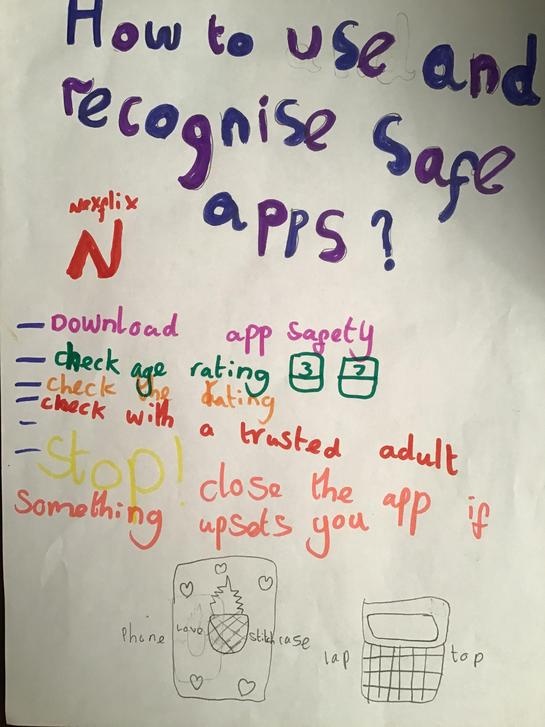 How to use and
recognise safe
apps?
Nexflix
N
- Download app safety
- check age rating 3 7
- check the rating
- check with a trusted adult
- Stop! close the app if
something upsets you
Phone Love stitch case
lap top